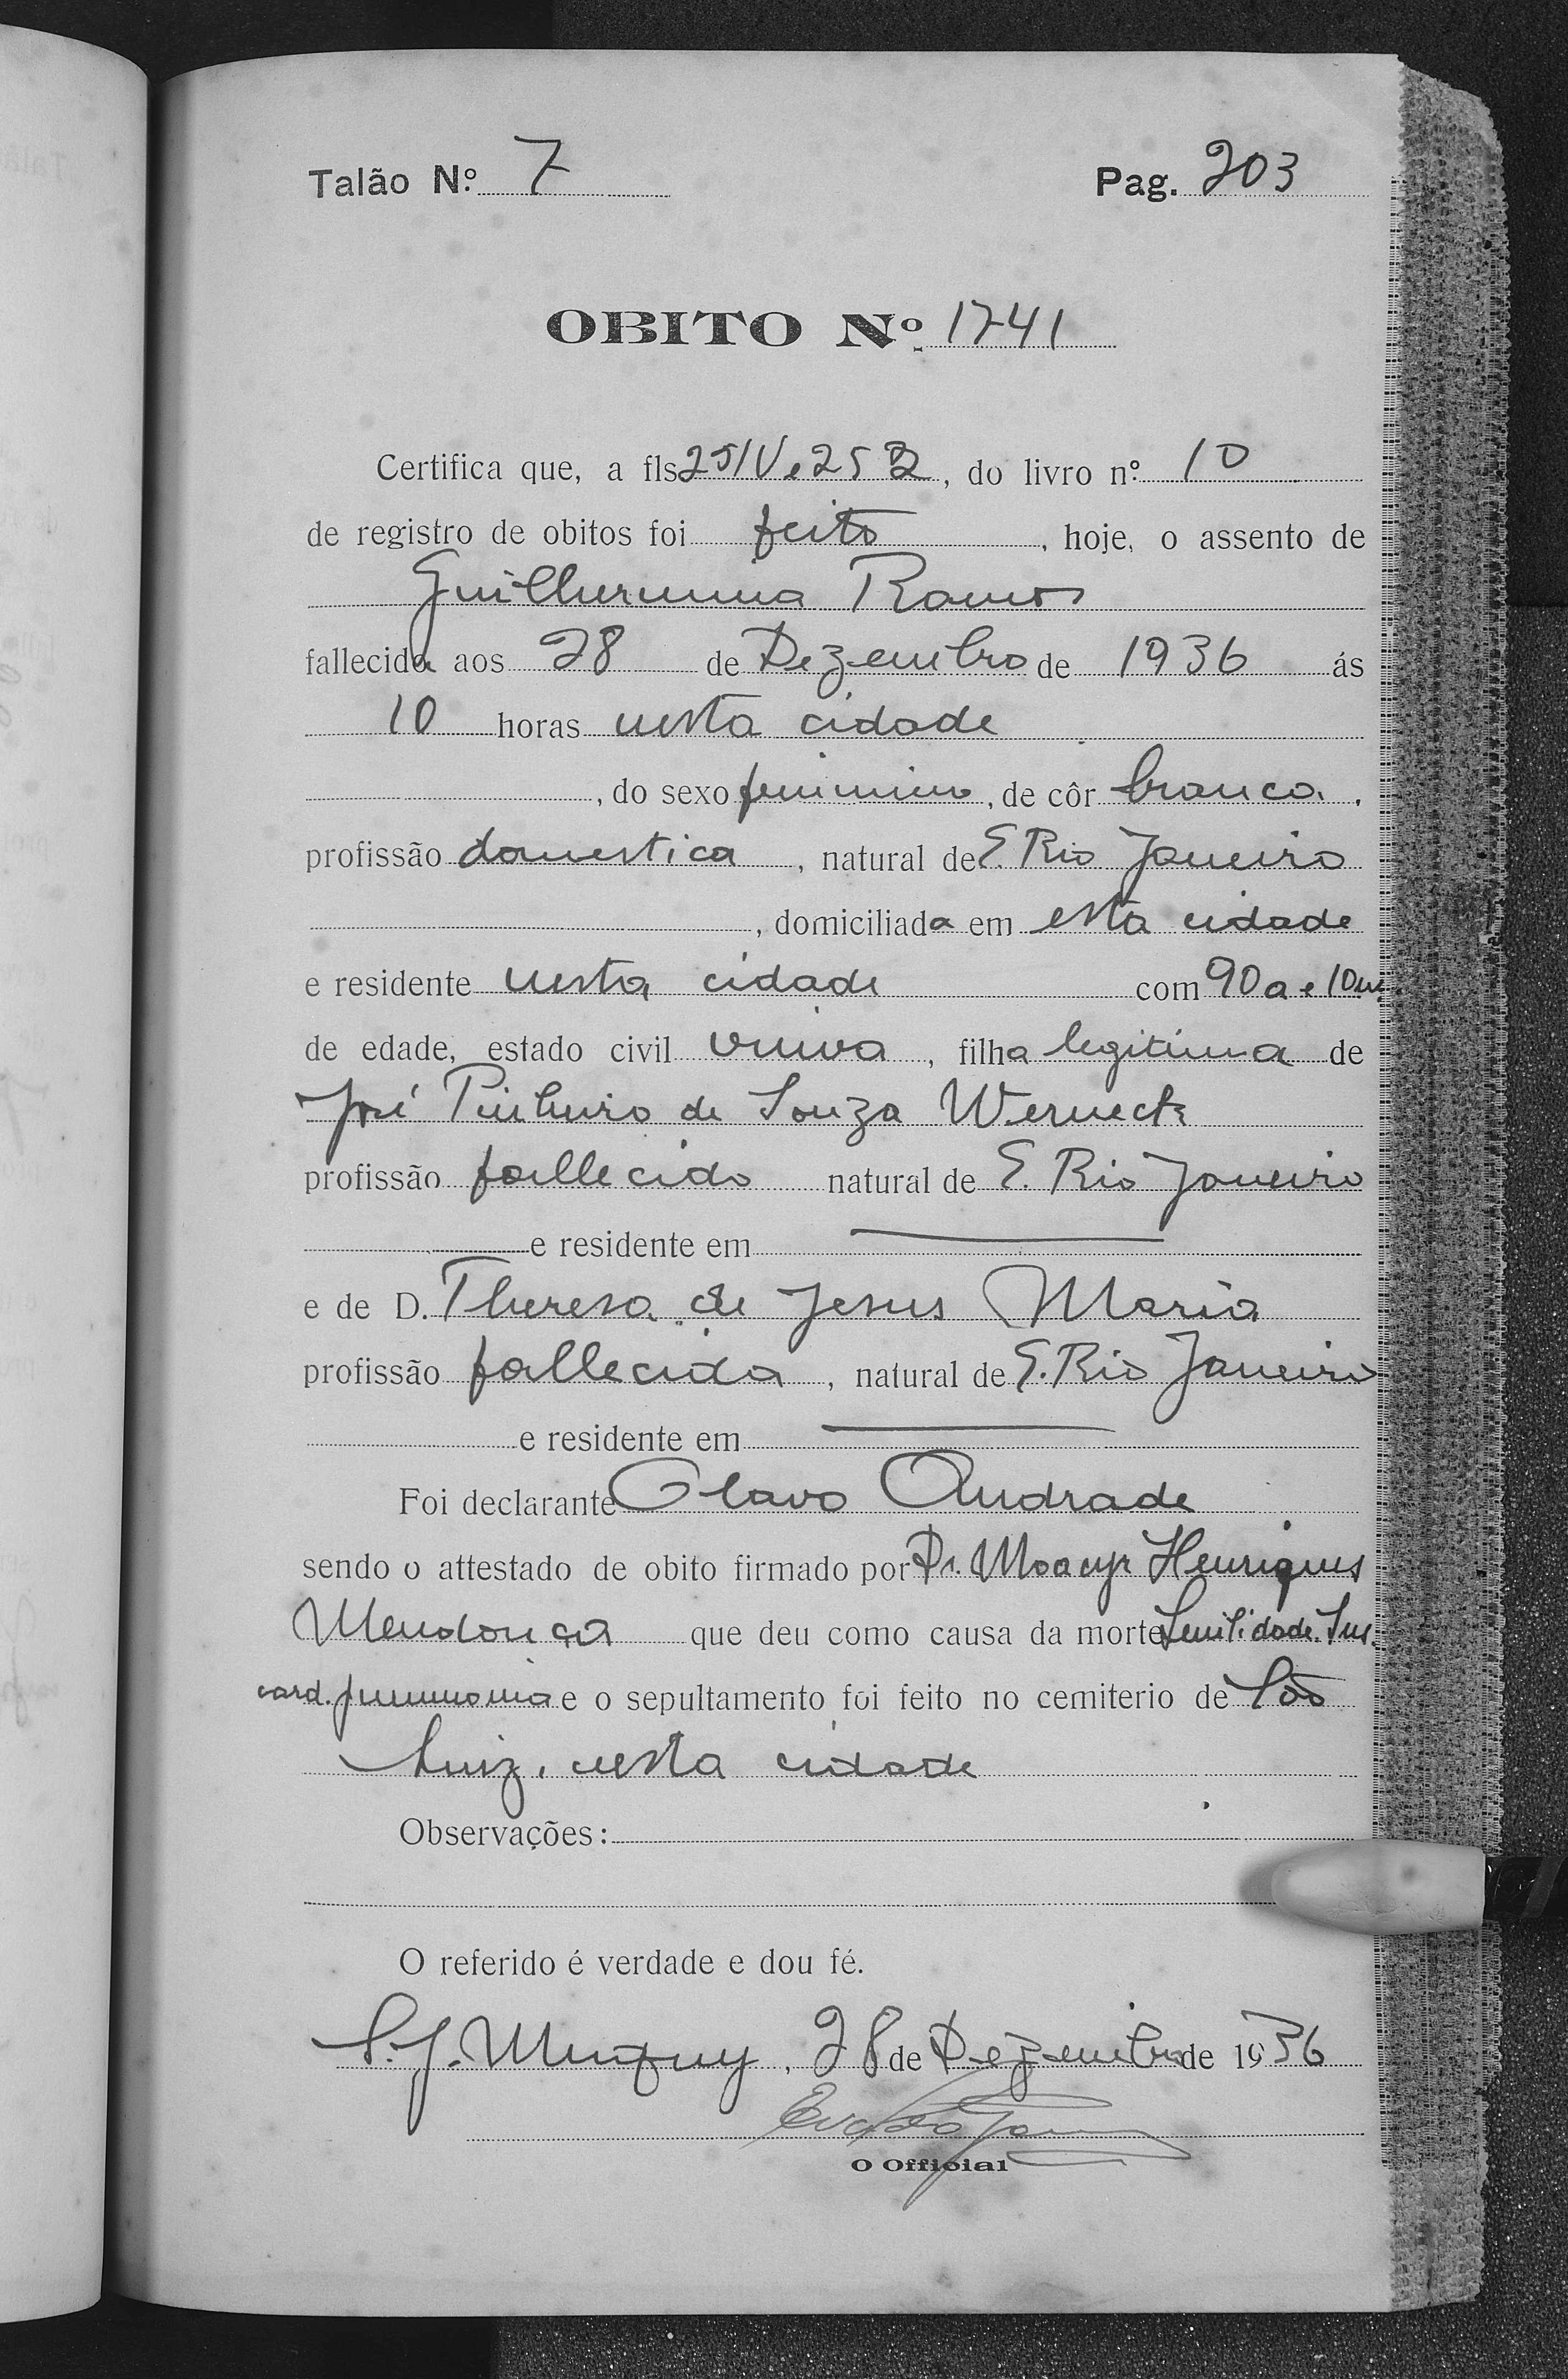 Talão N.º 7 Pag. 203
OBITO Nº 1741
Certifica que, a fls 251V e 252, do livro nº 10
de registro de obitos foi feito, hoje, o assento de
Guilhermina Ramos
fallecida aos 28 de Dezembro de 1936 ás
10 horas nesta cidade
, do sexo feminino, de côr branca,
profissão domestica, natural de E. Rio Janeiro
, domiciliada em esta cidade
e residente nesta cidade com 90 a e 10 m
de edade, estado civil viuva, filha legitima de
José Pinheiro de Souza Werneck
profissão fallecido natural de E. Rio Janeiro
e residente em
e de D. Theresa de Jesus Maria
profissão fallecida, natural de E. Rio Janeiro
e residente em
Foi declarante Olavo Andrade
sendo o attestado de obito firmado por Dr. Moacyr Henriques
Mendonça que deu como causa da morte Senilidade. Ins.
card. pneumonia e o sepultamento foi feito no cemiterio de São
Luiz, nesta cidade
Observações:
O referido é verdade e dou fé.
S. J. Muquy, 28 de Dezembro de 1936
O Official